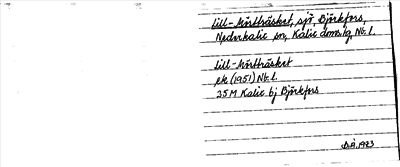 Lill-Mörtträsket, sjö, Björkfors,
Nederkalix sn, Kalix domsag, Nb. l.
Lill-Mörtträsket
ek (1951) Nb. l.
25M Kalix bj Björkfors
D.Å. 1983